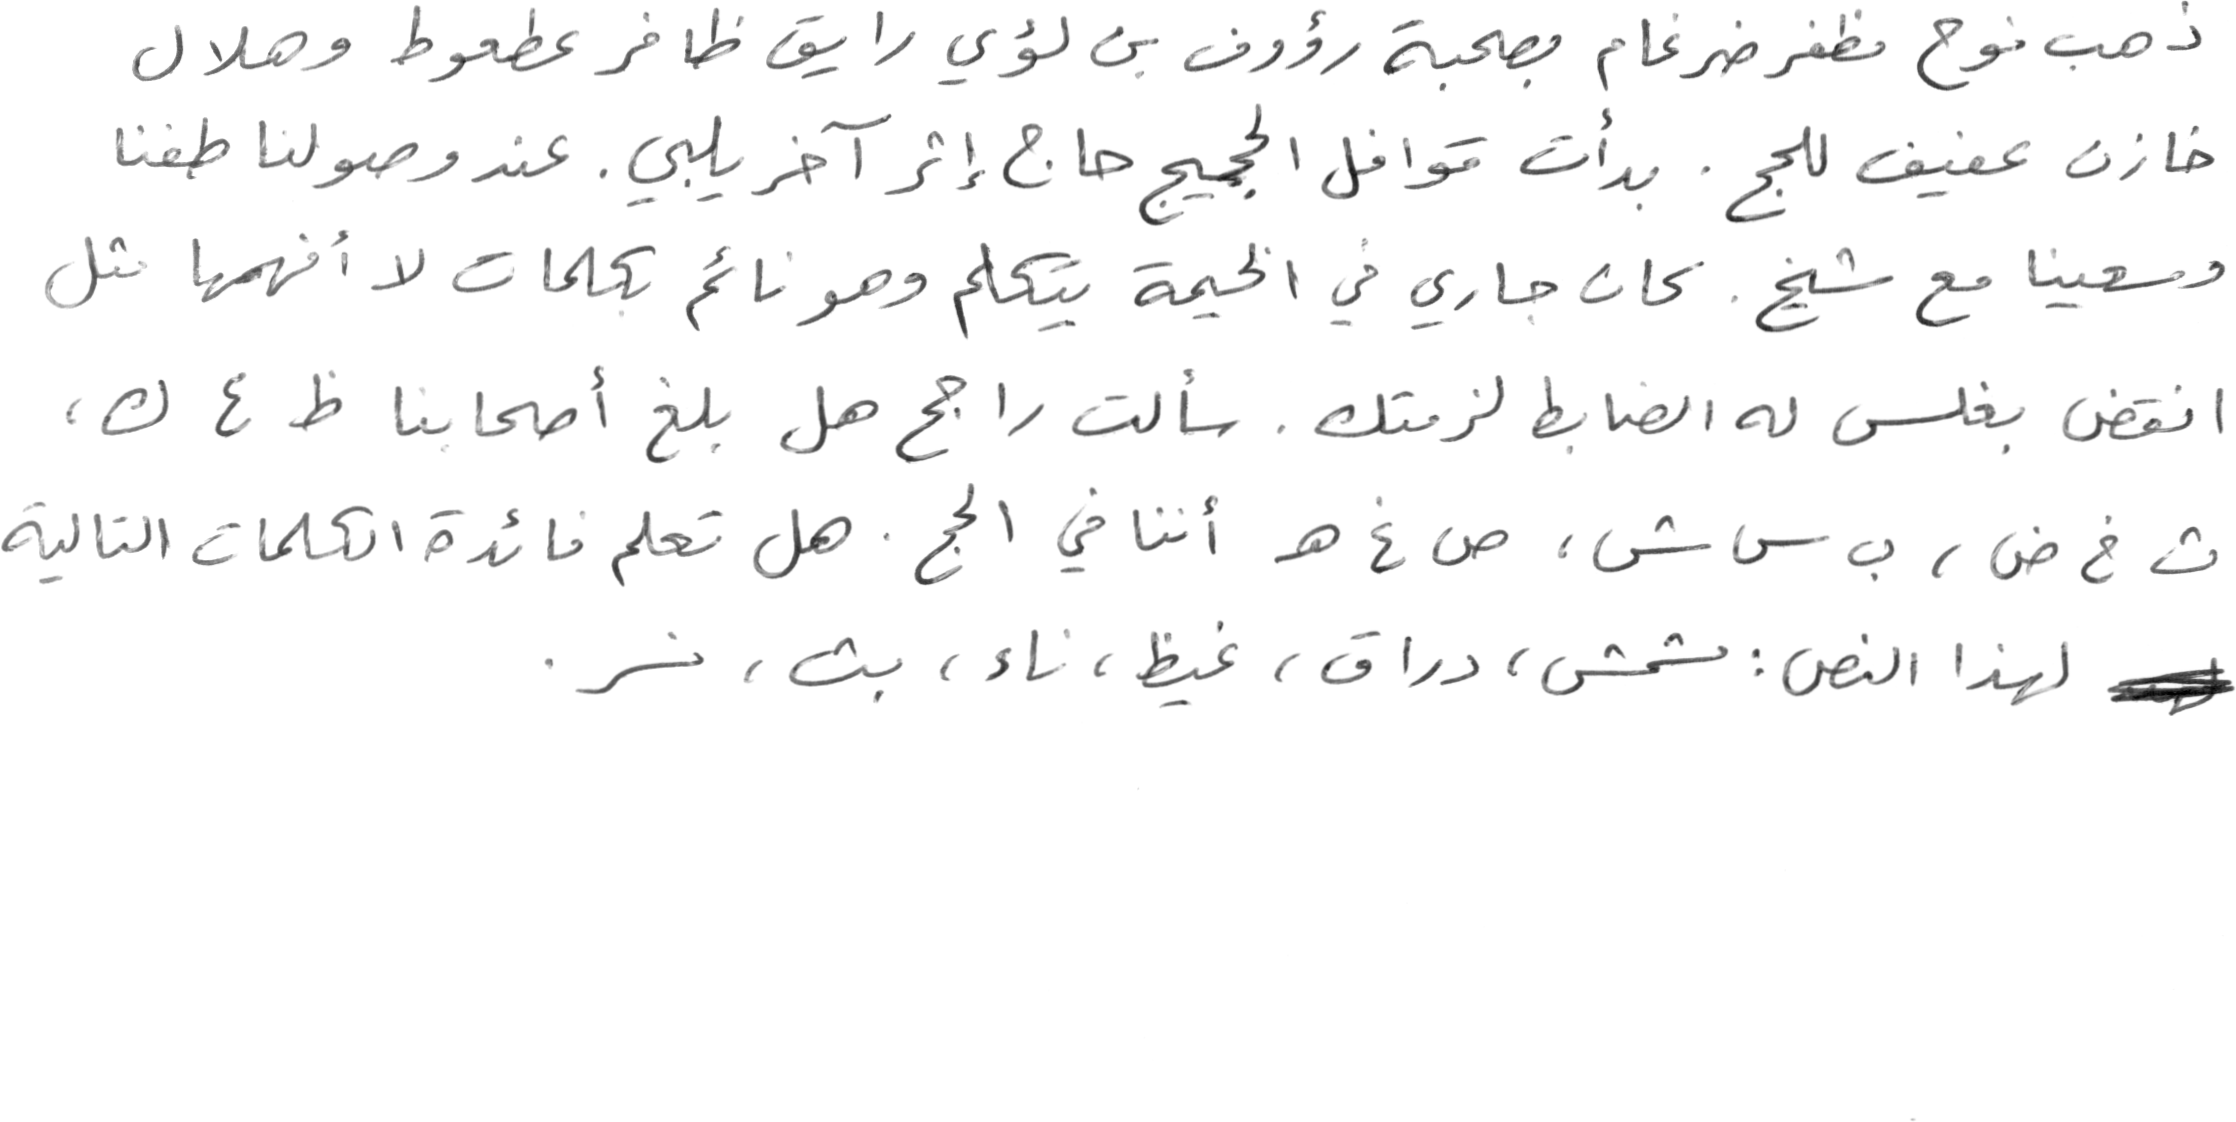 ذهب نوح مظفر ضرغام بصحبة رؤوف بن لؤي رايق ظافر عطعوط وهلال
خازن عفيف للحج . بدأت قوافل الحجيج حاج إثر آخر يلبي . عند وصولنا طفنا
وسعينا مع شيخ . كان جاري في الخيمة يتكلم وهو نائم بكلمات لا أفهمها مثل
انقض بغلس له الضابط لزمتك . سألت راجح هل بلغ أصحابنا ظ ع ك ،
ث خ ض ، ب س ش ، ص غ هـ أننا في الحج . هل تعلم فائدة الكلمات التالية
لهذا النص : مشمش ، دراق ، غيظ ، ناء ، بث ، نسر .